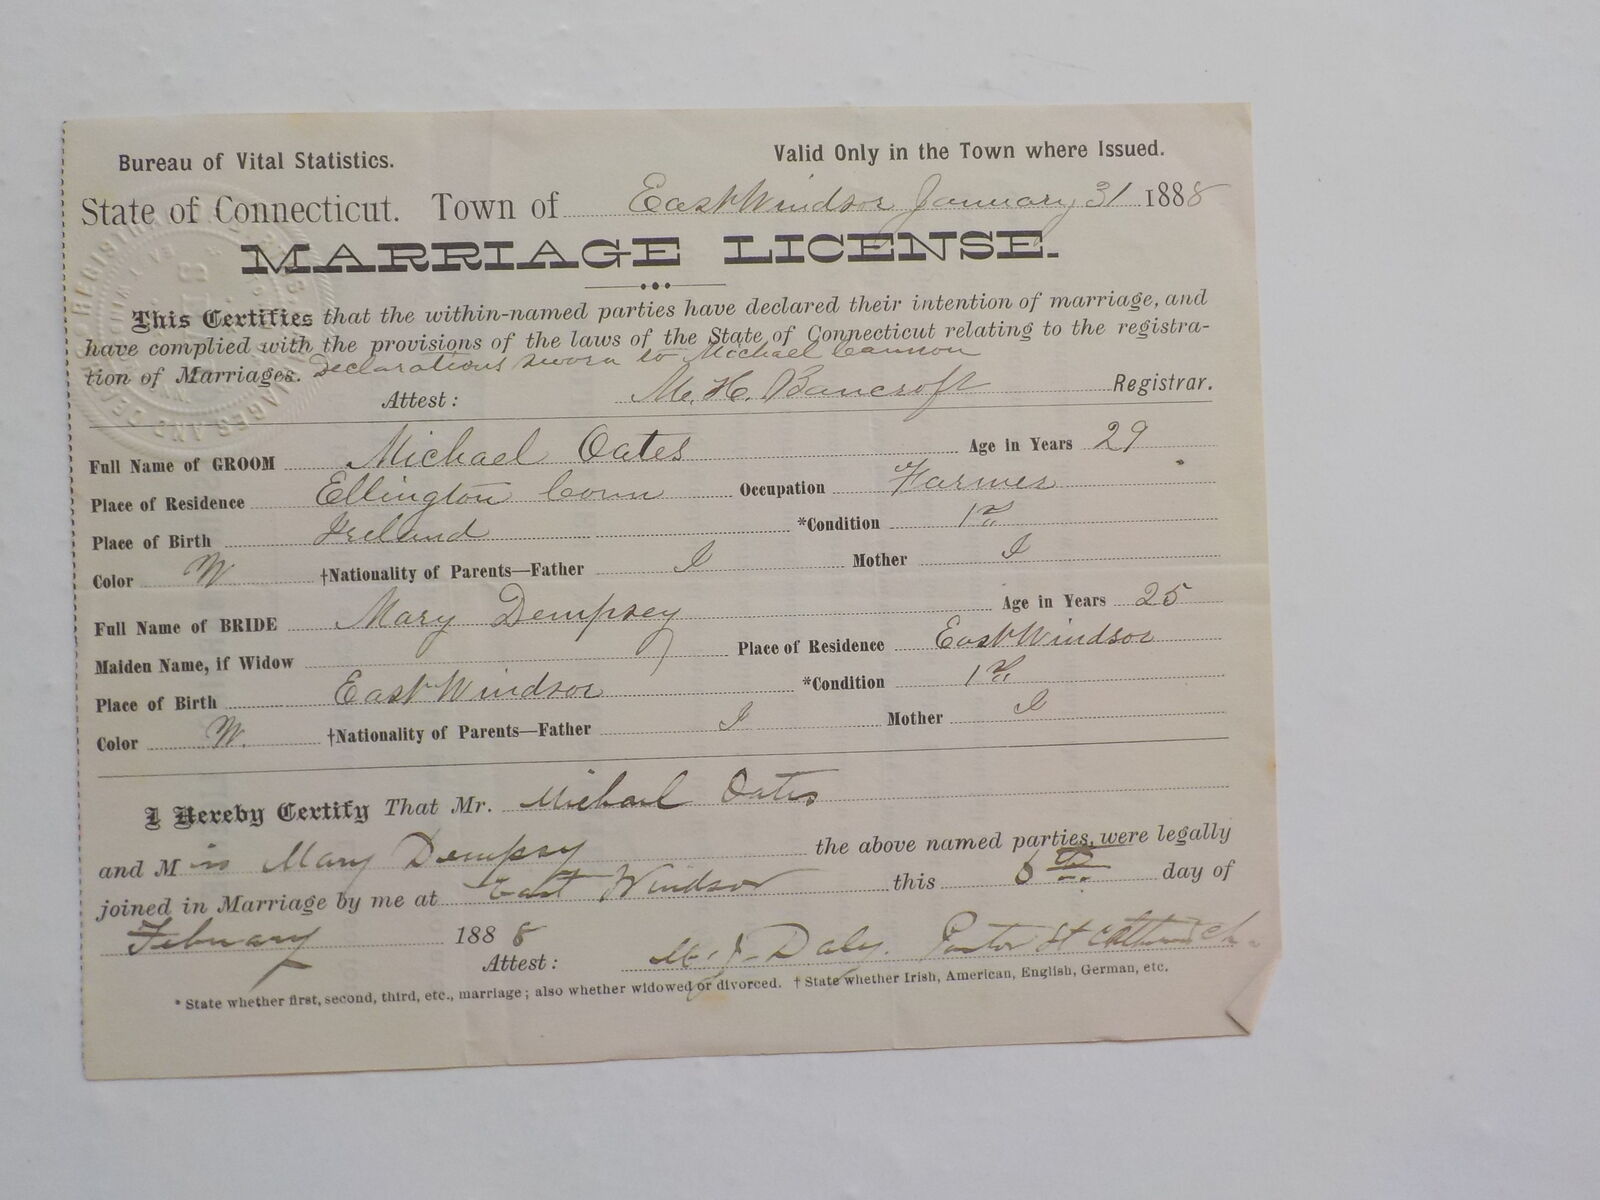 Bureau of Vital Statistics. Valid Only in the Town where Issued.
State of Connecticut. Town of East Windsor January 31 1888
MARRIAGE LICENSE.
This Certifies that the within-named parties have declared their intention of marriage, and
have complied with the provisions of the laws of the State of Connecticut relating to the registra-
tion of Marriages. Declarations sworn to Michael Cannon
Attest: M. H. Bancroft Registrar.
Full Name of GROOM Michael Oates Age in Years 29
Place of Residence Ellington Conn Occupation Farmer
Place of Birth Ireland *Condition 1st
Color W †Nationality of Parents—Father I Mother I
Full Name of BRIDE Mary Dempsey Age in Years 25
Maiden Name, if Widow Place of Residence East Windsor
Place of Birth East Windsor *Condition 1st
Color W. †Nationality of Parents—Father I Mother I
I Hereby Certify That Mr. Michael Oates
and Miss Mary Dempsy the above named parties, were legally
joined in Marriage by me at East Windsor this 6th day of
February 1888
Attest: M. J. Daly. Pastor St Ch.
* State whether first, second, third, etc., marriage; also whether widowed or divorced. † State whether Irish, American, English, German, etc.